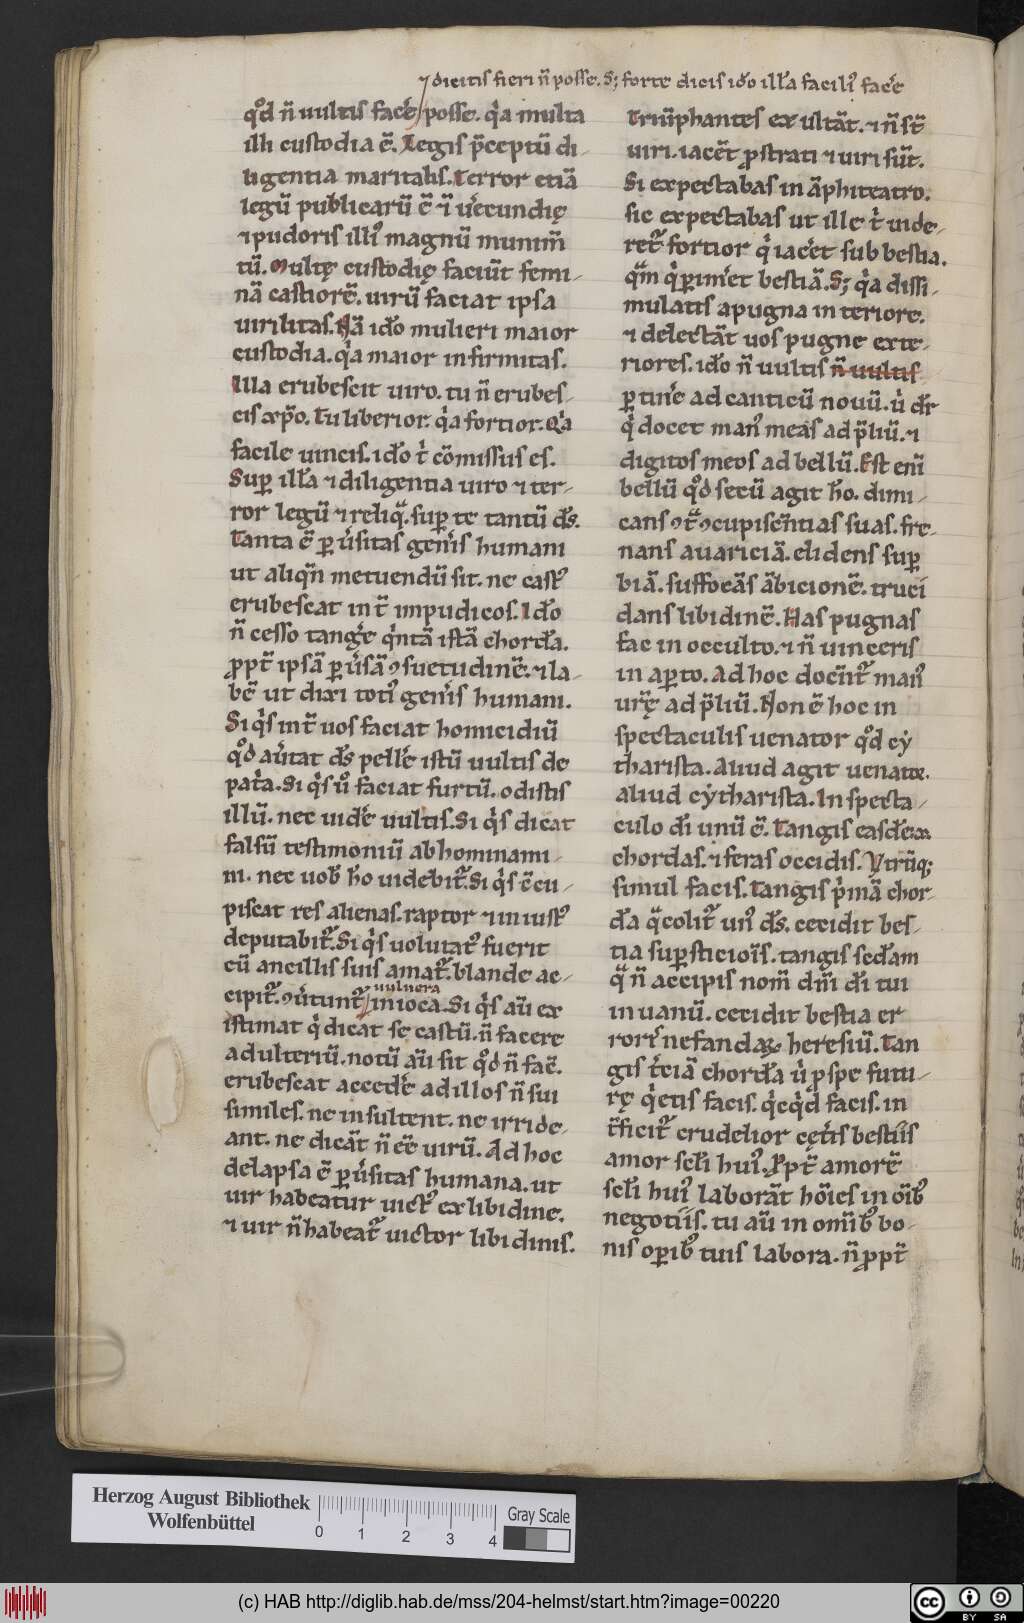 ⁊ dicitis fieri n̄ posse. S; forte dicis iđo illā facili᾽ fac̄e
qđ n̄ uultis fac̄e posse. q̇a multa
illi custodia ē. Legis p̄ceptū di-
ligentia maritalis. Terror etiā
legū publicarū ē ⁊ ī uerecundię
⁊ pudoris illi᾽ magnū munim̄
tū. Multę custodię faciūt femi-
nā castiorē. uirū faciat ipsa
uirilitas. Nā iđo mulieri maior
custodia. q̇a maior infirmitas.
Illa erubescit uiro. tu n̄ erubes-
cis xp̄o. Tu liberior. q̇a fortior. Q̇a
facile uincis. iđo t̍ cōmissus es.
Sup̱ illā ⁊ diligentia uiro ⁊ ter-
ror legū ⁊ reliq̄. sup̱ te tantū đs.
Tanta ē p̱uersitas gen̄is humani
ut aliqn̄ metuendū sit. ne cast᾽
erubescat int̄ impudicos. Iđo
n̄ cesso tanḡe q̇ntā istā chordā.
ꝓpt̄ ipsā p̱uersā ꝯsuetudinē. ⁊ la-
bē ut dixi toti᾽ gen̄is humani.
Si q̇s int̄ uos faciat homicidiū
qđ auertat đs pelle istū uultis de
pat̍a. Si q̇s u̍o faciat furtū. odistis
illū. nec uid̄e uultis. Si q̇s dicat
falsū testimoniū abhominami-
ni. nec uob̄ ho uidebit᾽. Si q̇s ꝯcu-
piscat res alienas. raptor ⁊ iniust᾽
deputabit᾽. Si q̇s uolutat᾽ fuerit
cū ancillis suis amat᾽. blande ac-
uulnera
cipit᾽. ꝯuertunt᾽ in ioca. Si q̇s aū ex
istimat q̇ dicat se castū. n̄ facere
adulteriū. notū aū sit qđ n̄ fac̄.
erubescat acced̄e ad illos n̄ sui
similes. ne insultent. ne irride-
ant. ne dicāt n̄ eē uirū. Ad hoc
delapsa ē p̱uersitas humana. ut
uir habeatur uict᾽ ex libidine.
⁊ uir n̄ habeat᾽ uictor libidinis.
Triūphantes exultāt. ⁊ n̄ st̄
uiri. iacēt ꝓstrati ⁊ uiri sūt.
Si expectabas in āphiteatro.
sic expectabas ut ille t̍ uide-
ret᾽ fortior q̇ iac̄et sub bestia.
qm̄ q̇ p̱im̄et bestiā. S; q̇a dissi-
mulatis a pugna interiore.
⁊ delectāt uos pugne exte-
riores. iđo n̄ uultis n̄ uultis
p̱tin̄e ad canticū nouū. u̍ dr̄
q̇ docet man᾽ meas ad p̄liū. ⁊
digitos meos ad bellū. Est enī
bellū qđ secū agit ho. dimi-
cans ꝯt̄ ꝯcupiscn̄tias suas. fre-
nans auariciā. elidens sup̱
biā. suffocās ābicionē. truci
dans libidinē. Has pugnas
fac in occulto. ⁊ n̄ uinceris
in ap̱to. Ad hoc docn̄t᾽ man᾽
urę̄ ad p̄liū. Non ē hoc in
spectaculis uenator qđ cẏ
tharista. Aliud agit uenator.
aliud cẏtharista. In specta-
culo đi unū ē. Tangis easdē x
chordas. ⁊ feras occidis. Utrūq;
simul facis. Tangis p̍mā chor-
dā q̄ colit᾽ un᾽ đs. cecidit bes-
tia sup̱sticioīs. tangis sedam
q̄ n̄ accipis nom̄ dn̄i đi tui
in uanū. cecidit bestia er
rori᾽ nefandaꝝ heresiū. Tan
gis t̍ciā chordā u̍ ꝓ spe futu-
rę q̇etis facis. q̇cq̇d facis. in
t̄ficit᾽ crudelior cęt̍is bestiis
amor scl̄i hui᾽. Ꝓpt̄ amorē
scl̄i hui᾽ laborāt hoīes in oīb᾽
negotiis. tu aū in omīb᾽ bo-
nis op̱ib᾽ tuis labora. n̄ ꝓpt̄
Herzog August Bibliothek
Wolfenbüttel
0 1 2 3 4
Gray Scale
(c) HAB http://diglib.hab.de/mss/204-helmst/start.htm?image=00220
cc BY SA